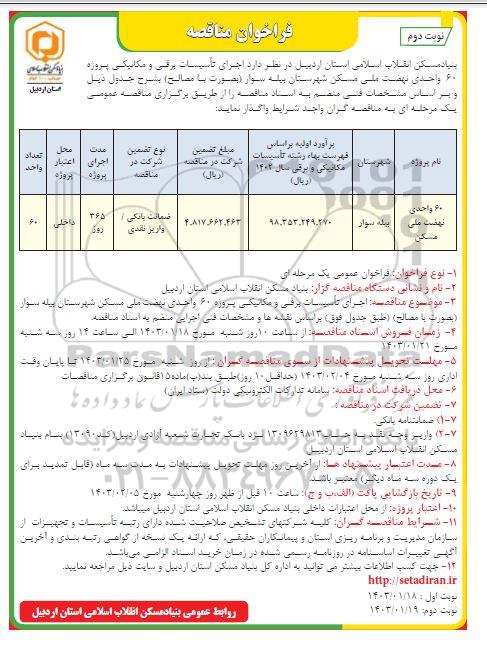 نوبت دوم
فراخوان مناقصه
بنیاد مسکن انقلاب اسلامی
استان اردبیل
بنیادمسکن انقلاب اسلامی استان اردبیل در نظر دارد اجرای تأسیسات برقی و مکانیکی پروژه
۶۰ واحدی نهضت ملی مسکن شهرستان بیله سوار (بصورت با مصالح) بشرح جدول ذیل
و بر اساس مشخصات فنی منضم به اسناد مناقصه را از طریق برگزاری مناقصه عمومی
یک مرحله ای به مناقصه گران واجد شرایط واگذار نماید:
نام پروژه	شهرستان	برآورد اولیه براساس فهرست بهاء رشته تأسیسات مکانیکی و برقی سال ۱۴۰۲ (ریال)	مبلغ تضمین شرکت در مناقصه (ریال)	نوع تضمین شرکت در مناقصه	مدت اجرای پروژه	محل اعتبار پروژه	تعداد واحد
۶۰ واحدی نهضت ملی مسکن	بیله سوار	۹۸,۳۵۳,۲۴۹,۲۷۰	۴,۸۱۷,۶۶۲,۴۶۳	ضمانت بانکی / واریز نقدی	۳۶۵ روز	داخلی	۶۰
۱- نوع فراخوان: فراخوان عمومی یک مرحله ای
۲- نام و نشانی دستگاه مناقصه گزار: بنیاد مسکن انقلاب اسلامی استان اردبیل
۳- موضوع مناقصه: اجرای تأسیسات برقی و مکانیکی پروژه ۶۰ واحدی نهضت ملی مسکن شهرستان بیله سوار
(بصورت با مصالح) (طبق جدول فوق) براساس نقشه ها و مشخصات فنی اجرایی منضم به اسناد مناقصه.
۴- زمان فروش اسناد مناقصه: از ساعت ۱۰ روز شنبه مورخ ۱۴۰۳/۰۱/۱۸ الی ساعت ۱۴ روز سه شنبه
مورخ ۱۴۰۳/۰۱/۲۱
۵- مهلت تحویل پیشنهادات از سوی مناقصه گران: از روز شنبه مورخ ۱۴۰۳/۰۱/۲۵ تا پایان وقت
اداری روز سه شنبه مورخ ۱۴۰۳/۰۲/۰۴ (حداقل ۱۰ روز) طبق بند(ب)ماده۱۵قانون برگزاری مناقصات
۶- محل دریافت اسناد مناقصه: سامانه تدارکات الکترونیکی دولت (ستاد ایران)
۷- تضمین شرکت در مناقصه:
۷-۱) ضمانتنامه بانکی.
۷-۲) واریز وجه نقد به حساب ۱۳۰۹۶۲۹۸۱۳ نزد بانک تجارت شعبه آزادی اردبیل(کد۱۳۰۹۰) بنام بنیاد
مسکن انقلاب اسلامی استان اردبیل
۸- مدت اعتبار پیشنهاد ها: از آخرین روز مهلت تحویل پیشنهادات به مدت سه ماه (قابل تمدید برای
یک دوره سه ماه دیگر) معتبر باشد.
۹- تاریخ بازگشایی پاکت (الف،ب و ج): ساعت ۱۰ قبل از ظهر روز چهارشنبه مورخ ۱۴۰۳/۰۲/۰۵
۱۰- اعتبار پروژه: از محل اعتبارات داخلی بنیاد مسکن انقلاب اسلامی استان اردبیل میباشد.
۱۱- شرایط مناقصه گران: کلیه شرکتهای تشخیص صلاحیت شده دارای رتبه تأسیسات و تجهیزات از
سازمان مدیریت و برنامه ریزی استان و پیمانکاران حقیقی، که ارائه یک نسخه از گواهی رتبه بندی و آخرین
آگهی تغییرات اساسنامه در روزنامه رسمی شده در زمان خرید اسناد الزامی می‌باشد.
۱۲- جهت کسب اطلاعات بیشتر می توانید به اداره کل بنیاد مسکن استان اردبیل و سایت ذیل مراجعه نمایید.
http://setadiran.ir
نوبت اول : ۱۴۰۳/۰۱/۱۸
نوبت دوم: ۱۴۰۳/۰۱/۱۹
روابط عمومی بنیادمسکن انقلاب اسلامی استان اردبیل